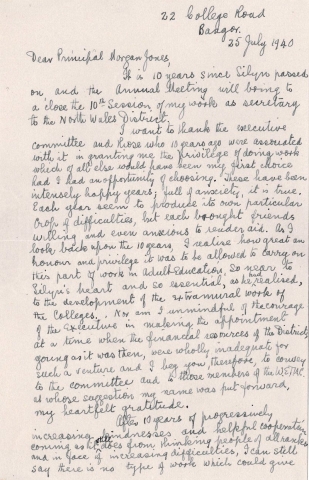 22 College Road
Bangor.
25 July 1940
Dear Principal Morgan Jones,
It is 10 years since Silyn passed
on and the Annual Meeting will bring to
a close the 10th Session of my work as secretary
to the North Wales District.
I want to thank the executive
committee and those who 10 years ago were associated
with it in granting me the privilege of doing work
which of all else would have been my first choice
had I had an opportunity of choosing. These have been
intensely happy years; full of anxiety, it is true.
Each year seems to produce its own particular
crop of difficulties, but each brought friends
willing and even anxious to render aid. As I
look back upon the 10 years, I realise how great an
honour and privilege it was to be allowed to carry on
this part of work in Adult Education, so near to
Silyn's heart and so essential, as he had realised,
to the development of the extramural work of
the Colleges. Nor am I unmindful of the courage
of the Executive in making the appointment
at a time when the financial resources of the District,
going as it was then, were wholly inadequate for
such a venture and I beg you, therefore, to convey
to the committee and to those members of the
at whose suggestion my name was put forward,
my heartfelt gratitude.
After 10 years of progressively
increasing kindnesses and helpful cooperation
coming as it does from thinking people of all ranks
and in face of increasing difficulties, I can still
say there is no type of work which could give